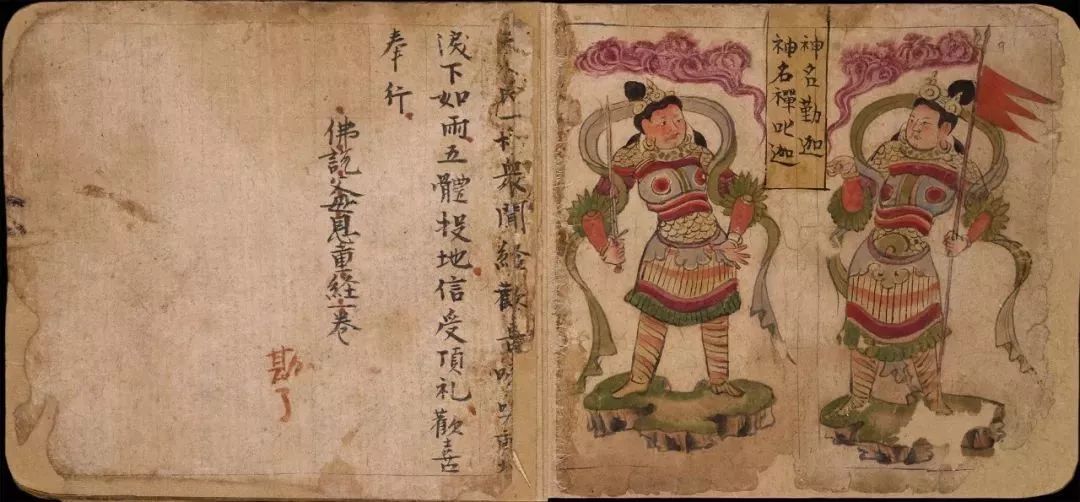 神名勤迦
神名禪叱迦
人民一切衆聞經歡喜
淚下如雨五體投地信受頂礼歡喜
奉行
佛説父母恩重経一卷
勘了